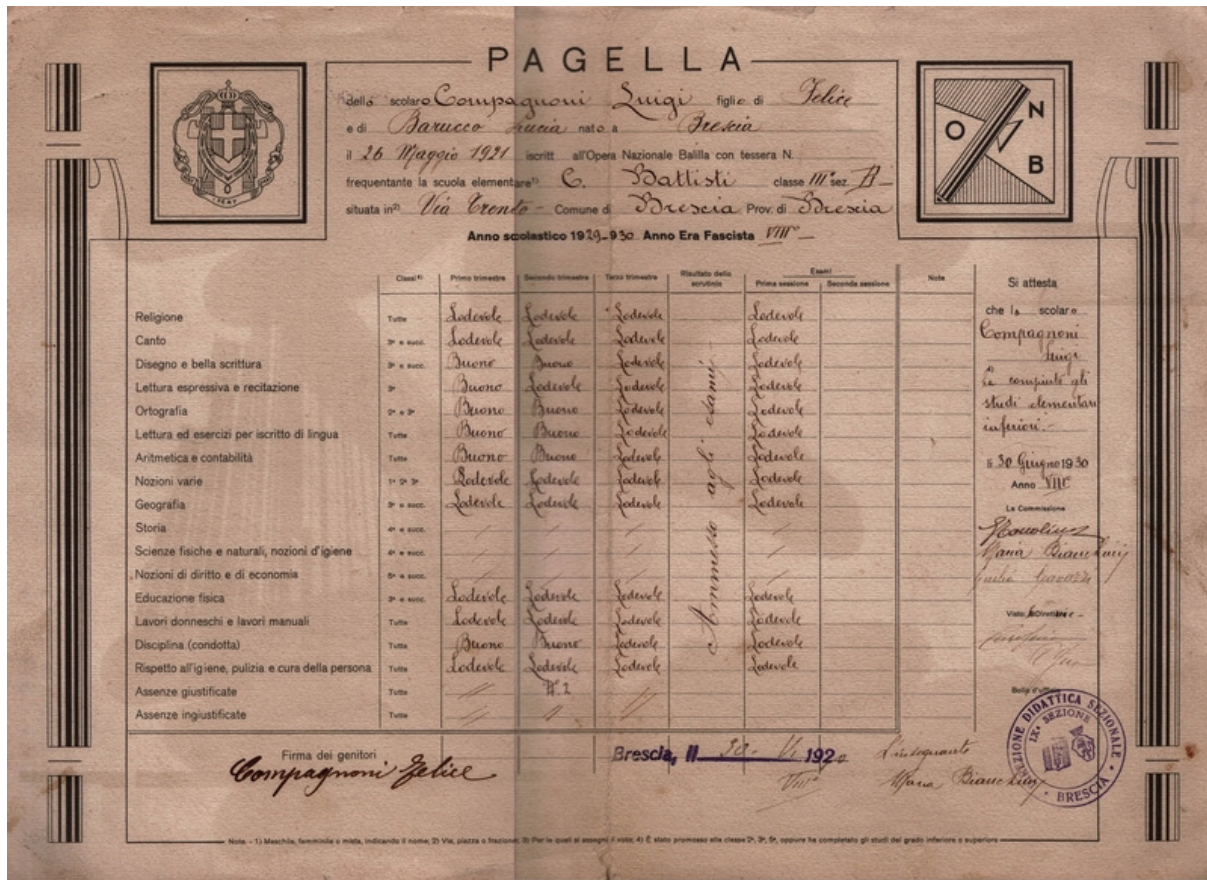 PAGELLA
dello scolaro Compagnoni Luigi figlio di Felice
e di Barucco Lucia nato a Brescia
il 26 Maggio 1921 iscritt all'Opera Nazionale Balilla con tessera N.
frequentante la scuola elementare¹⁾ C. Battisti classe IIIª sez. B
situata in²⁾ Via Trento - Comune di Brescia Prov. di Brescia
Anno scolastico 1929-930 Anno Era Fascista VIII°
O N B
Classi³⁾ Primo trimestre Secondo trimestre Terzo trimestre Risultato dello scrutinio Esami Prima sessione Seconda sessione Note
Religione Tutte Lodevole Lodevole Lodevole Lodevole
Canto 3ª e succ. Lodevole Lodevole Lodevole Lodevole
Disegno e bella scrittura 3ª e succ. Buono Buono Lodevole Lodevole
Lettura espressiva e recitazione 3ª Buono Lodevole Lodevole Lodevole
Ortografia 2ª e 3ª Buono Buono Lodevole Lodevole
Lettura ed esercizi per iscritto di lingua Tutte Buono Buono Lodevole Lodevole
Aritmetica e contabilità Tutte Buono Buono Lodevole Lodevole
Nozioni varie 1ª 2ª 3ª Lodevole Lodevole Lodevole Lodevole
Geografia 3ª e succ. Lodevole Lodevole Lodevole Lodevole
Storia 4ª e succ.
Scienze fisiche e naturali, nozioni d'igiene 4ª e succ.
Nozioni di diritto e di economia 5ª e succ.
Educazione fisica 3ª e succ. Lodevole Lodevole Lodevole Lodevole
Lavori donneschi e lavori manuali Tutte Lodevole Lodevole Lodevole Lodevole
Disciplina (condotta) Tutte Buono Buono Lodevole Lodevole
Rispetto all'igiene, pulizia e cura della persona Tutte Lodevole Lodevole Lodevole Lodevole
Assenze giustificate Tutte N. 2
Assenze ingiustificate Tutte
Ammesso agli esami -
Si attesta
che lo scolaro
Compagnoni
Luigi
ha compiuto gli
studi elementari
inferiori. -
li 30 Giugno 1930
Anno VIII°
La Commissione
Maria Bianchini
Visto, il Direttore
Bollo d'ufficio
DIREZIONE DIDATTICA SEZIONALE
IXª SEZIONE
BRESCIA
Firma dei genitori
Compagnoni Felice
Brescia, li 30 - VI 1920
VIII°
L'insegnante
Maria Bianchini
Note. - 1) Maschile, femminile o mista, indicando il nome; 2) Via, piazza o frazione; 3) Per le quali si assegni il voto; 4) È stato promosso alla classe 2ª, 3ª, 5ª, oppure ha completato gli studi del grado inferiore o superiore